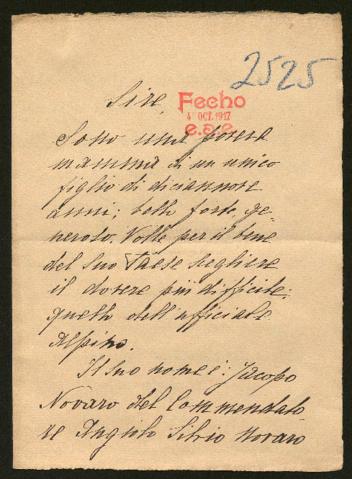 2525
Sire,
Fecho
4 OCT. 1917
e.a.e.
Sono una povera
mamma di un unico
figlio di diciannove
anni; bello, forte, ge-
neroso. Volle per il bene
del suo Paese scegliere
il dovere più difficile:
quello dell'ufficiale
Alpino.
Il suo nome è: Jacopo
Novaro del Commendato-
re Angiolo Silvio Novaro